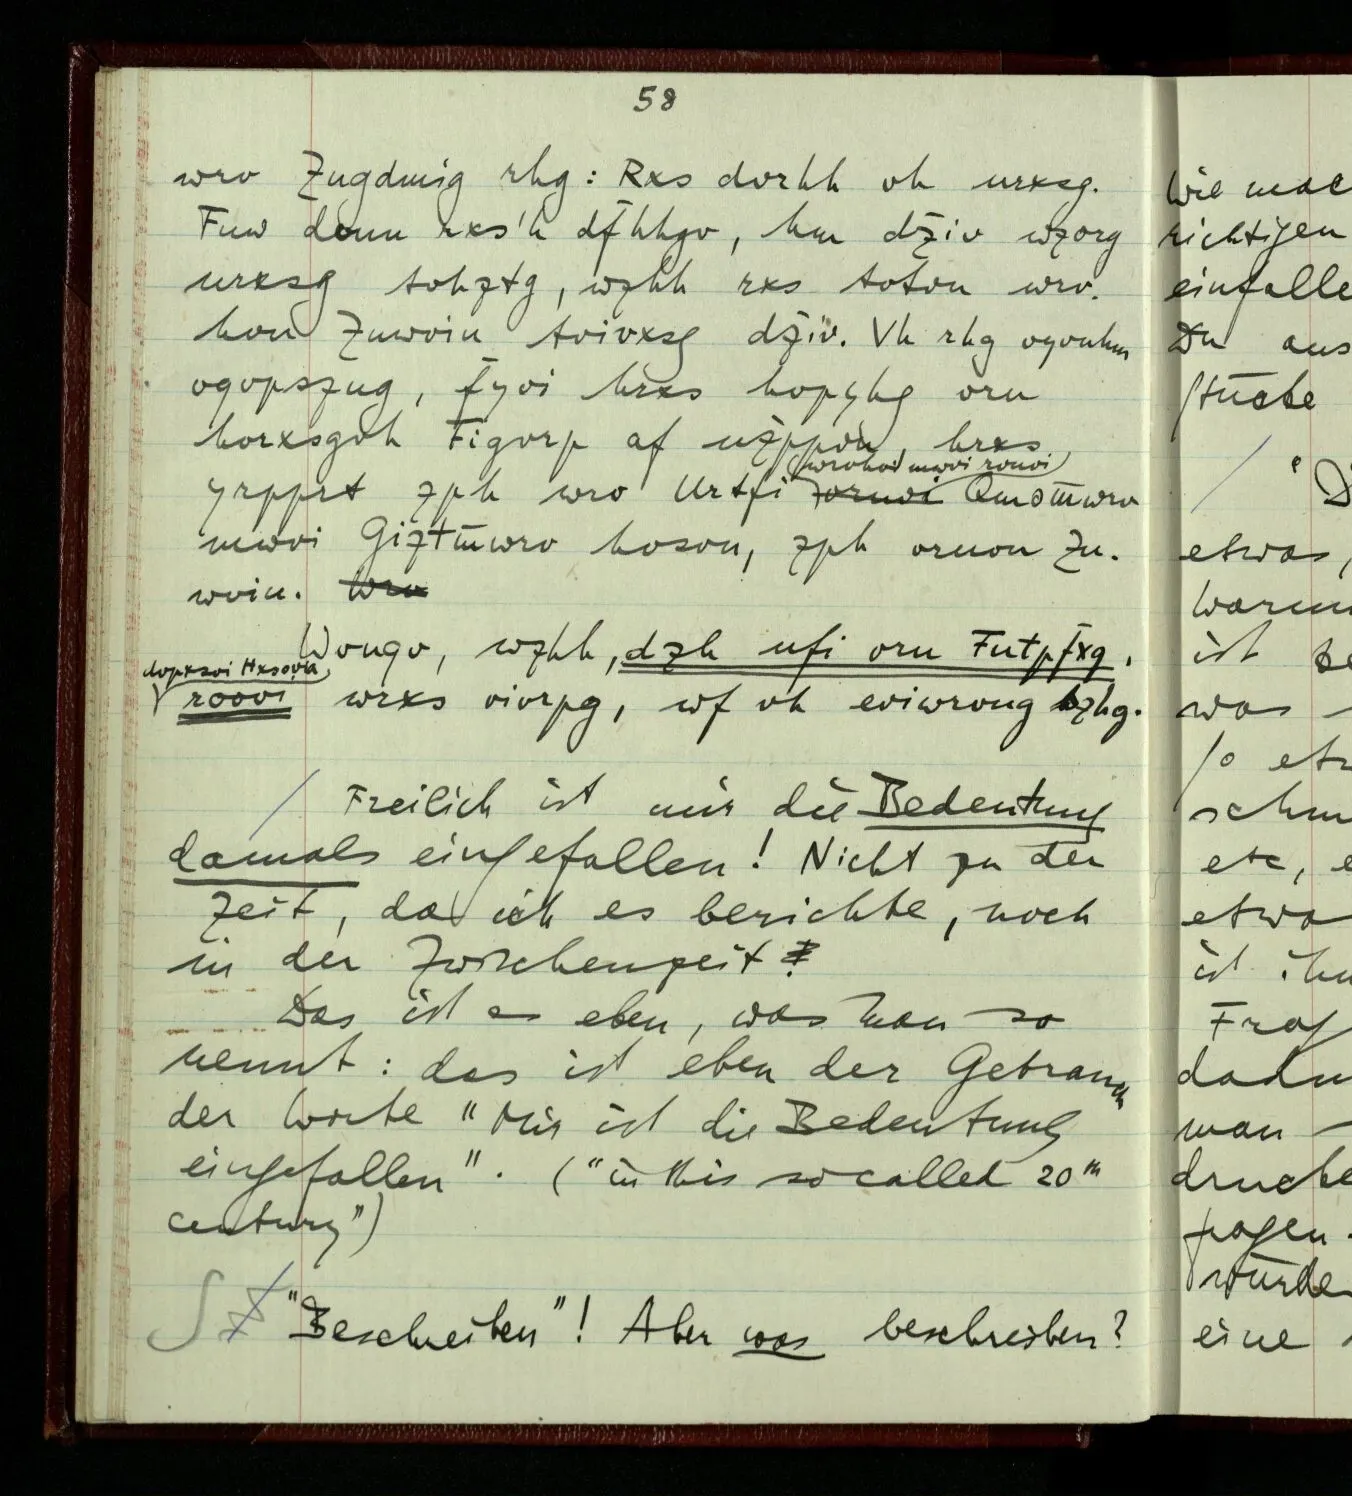 58
wrv Zugdmig rhg: Rxs dvrhh vh urxsg.
Fuw douu rxs'h df̄hhgv, hm dz̄iv wzorg
urxsg tohztg, wzhh rxs totou wrv.
hou Zuwviu tvivxsg dz̄iv. Vh rhg ogouhm
ogopszug, f̄yoi hrxs hopyhg oru
horxsgoh Figorp af uz̄ppou, hrxs
(wrohoi mwoi rouoi)
yrpprt zph wro Urtfi Qmsm̄wro
mwoi Giztm̄wro hosou, zph oruou Zu-
woiu.
Wougo, wzhh, dzh ufi oru Futpf̄xg,
roovi wrxs oiorpg, wf oh eoiwroug hzhg.
/ Freilich ist mir die Bedeutung
damals eingefallen! Nicht zu der
Zeit, da ich es berichte, noch
in der Zwischenzeit
Das ist es eben, was man so
nennt: das ist eben der Gebrauch
der Worte "Mir ist die Bedeutung
eingefallen". ("in this so called 20th
century")
∫ "Beschreiben"! Aber was beschreiben?
Wie mac
richtigen
einfalle
Du aus
Stücke
/ "D
etwas,
warum
ist be
was
so etw
schm
etc, e
etwa
ist ihm
Frag
dadu
man
drucke
sagen.
würde
eine